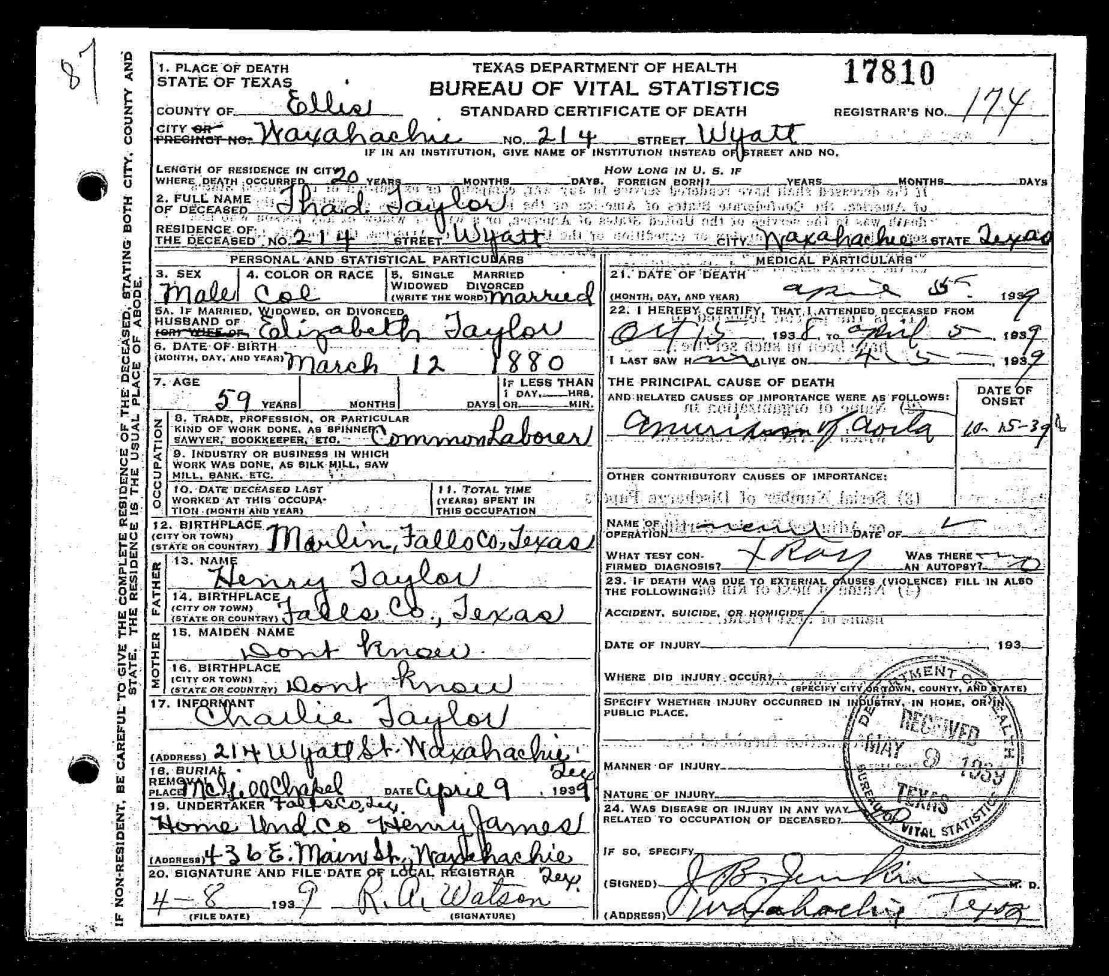 87
1. PLACE OF DEATH
STATE OF TEXAS
TEXAS DEPARTMENT OF HEALTH
BUREAU OF VITAL STATISTICS
STANDARD CERTIFICATE OF DEATH
17810
COUNTY OF Ellis
REGISTRAR'S NO. 174
CITY OR PRECINCT NO. Waxahachie NO. 214 STREET Wyatt
IF IN AN INSTITUTION, GIVE NAME OF INSTITUTION INSTEAD OF STREET AND NO.
LENGTH OF RESIDENCE IN CITY WHERE DEATH OCCURRED 20 YEARS MONTHS DAYS.
HOW LONG IN U. S. IF FOREIGN BORN? YEARS MONTHS DAYS
2. FULL NAME OF DECEASED Thad Taylor
RESIDENCE OF THE DECEASED NO. 214 STREET Wyatt CITY Waxahachie STATE Texas
PERSONAL AND STATISTICAL PARTICULARS
3. SEX Male
4. COLOR OR RACE Col
5. SINGLE MARRIED WIDOWED DIVORCED (WRITE THE WORD) married
5A. IF MARRIED, WIDOWED, OR DIVORCED
HUSBAND OF (OR) WIFE OF Elizabeth Taylor
6. DATE OF BIRTH
(MONTH, DAY, AND YEAR) March 12 1880
7. AGE
59 YEARS MONTHS DAYS
IF LESS THAN 1 DAY, HRS. OR MIN.
OCCUPATION
8. TRADE, PROFESSION, OR PARTICULAR
KIND OF WORK DONE, AS SPINNER,
SAWYER, BOOKKEEPER, ETC. Common Laborer
9. INDUSTRY OR BUSINESS IN WHICH
WORK WAS DONE, AS SILK MILL, SAW
MILL, BANK, ETC.
10. DATE DECEASED LAST
WORKED AT THIS OCCUPATION (MONTH AND YEAR)
11. TOTAL TIME
(YEARS) SPENT IN
THIS OCCUPATION
12. BIRTHPLACE
(CITY OR TOWN)
(STATE OR COUNTRY) Marlin, Falls Co, Texas
FATHER
13. NAME
Henry Taylor
14. BIRTHPLACE
(CITY OR TOWN)
(STATE OR COUNTRY) Falls Co., Texas
MOTHER
15. MAIDEN NAME
Dont know
16. BIRTHPLACE
(CITY OR TOWN)
(STATE OR COUNTRY) Dont know
17. INFORMANT
Charlie Taylor
(ADDRESS) 214 Wyatt St. Waxahachie Tex
18. BURIAL
REMOVAL
PLACE McGill Chapel DATE April 9, 1939
Falls Co, Tex.
19. UNDERTAKER
Home Und. Co Henry James
(ADDRESS) 436 E. Main St, Waxahachie Tex.
20. SIGNATURE AND FILE DATE OF LOCAL REGISTRAR
4-8 1939 R. A. Watson
(FILE DATE) (SIGNATURE)
MEDICAL PARTICULARS
21. DATE OF DEATH
(MONTH, DAY, AND YEAR) april 5 1939
22. I HEREBY CERTIFY, THAT I ATTENDED DECEASED FROM
Oct 15 1938 TO april 5 1939
I LAST SAW H ALIVE ON 4 5 1939
THE PRINCIPAL CAUSE OF DEATH
AND RELATED CAUSES OF IMPORTANCE WERE AS FOLLOWS:
DATE OF ONSET
of
OTHER CONTRIBUTORY CAUSES OF IMPORTANCE:
NAME OF OPERATION DATE OF
WHAT TEST CONFIRMED DIAGNOSIS? X Ray WAS THERE AN AUTOPSY? no
23. IF DEATH WAS DUE TO EXTERNAL CAUSES (VIOLENCE) FILL IN ALSO
THE FOLLOWING:
ACCIDENT, SUICIDE, OR HOMICIDE
DATE OF INJURY 193
WHERE DID INJURY OCCUR?
(SPECIFY CITY OR TOWN, COUNTY, AND STATE)
SPECIFY WHETHER INJURY OCCURRED IN INDUSTRY, IN HOME, OR IN
PUBLIC PLACE.
MANNER OF INJURY
NATURE OF INJURY
24. WAS DISEASE OR INJURY IN ANY WAY
RELATED TO OCCUPATION OF DECEASED? no
IF SO, SPECIFY
(SIGNED) J B Jenkins M. D.
(ADDRESS) Waxahachie Texas
DEPARTMENT OF HEALTH
RECEIVED
MAY 9 1939
TEXAS
BUREAU OF VITAL STATISTICS
IF NON-RESIDENT, BE CAREFUL TO GIVE THE COMPLETE RESIDENCE OF THE DECEASED, STATING BOTH CITY, COUNTY AND
STATE. THE RESIDENCE IS THE USUAL PLACE OF ABODE.